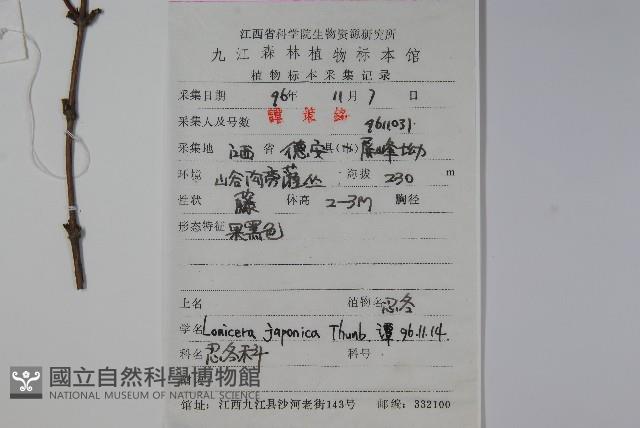 江西省科学院生物资源研究所
九江森林植物标本馆
植物标本采集记录
采集日期 96年 11月 7日
采集人及号数 譚策銘 9611031
采集地 江西省 德安县(市) 屏峰坳
环境 山谷沟旁灌丛 , 海拔 230 m
性状 藤 体高 2-3M 胸径
形态特征 果黑色
土名 植物名 忍冬
学名 Lonicera japonica Thunb. 譚 96.11.14.
科名 忍冬科 科号
附
國立自然科學博物館
NATIONAL MUSEUM OF NATURAL SCIENCE
馆址: 江西九江县沙河老街143号 邮编: 332100